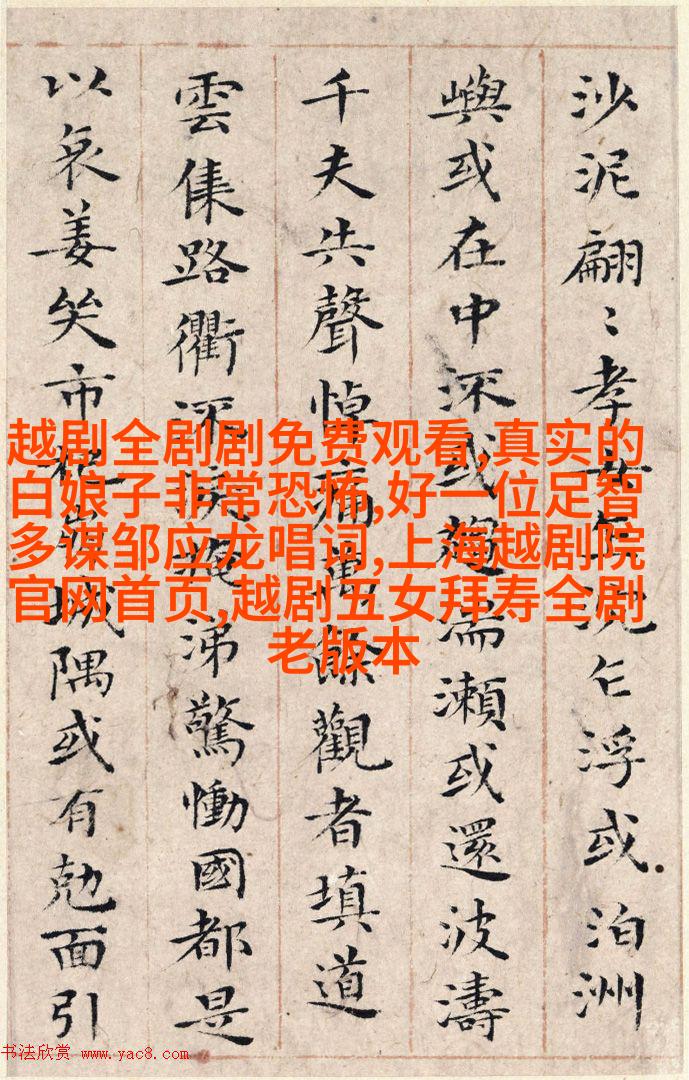 沙泥翩〻孝女乍沈乍浮或泊洲
嶼或在中深或趨湍瀨或還波濤
千夫共聲悼痛萬餘觀者填道
雲集路衢淚掩涕驚慟國都是
以哀姜哭市杞崩城隅或有勀面引
越剧全剧剧免费观看,真实的
白娘子非常恐怖,好一位足智
多谋邹应龙唱词,上海越剧院
官网首页,越剧五女拜寿全剧
老版本
书法欣赏 www.yac8.com